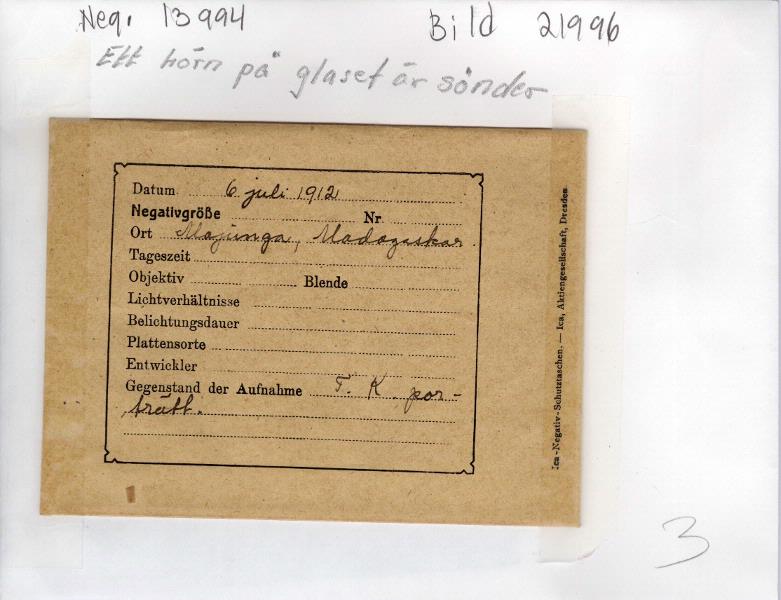 Neg. 13994 Bild 21996
Ett hörn på glaset är sönder
Datum 6 juli 1912
Negativgröße Nr
Ort Majunga, Madagaskar
Tageszeit
Objektiv Blende
Lichtverhältnisse
Belichtungsdauer
Plattensorte
Entwickler
Gegenstand der Aufnahme T. K. por-
trätt.
Ica-Negativ-Schutztaschen. — Ica, Aktiengesellschaft, Dresden
3